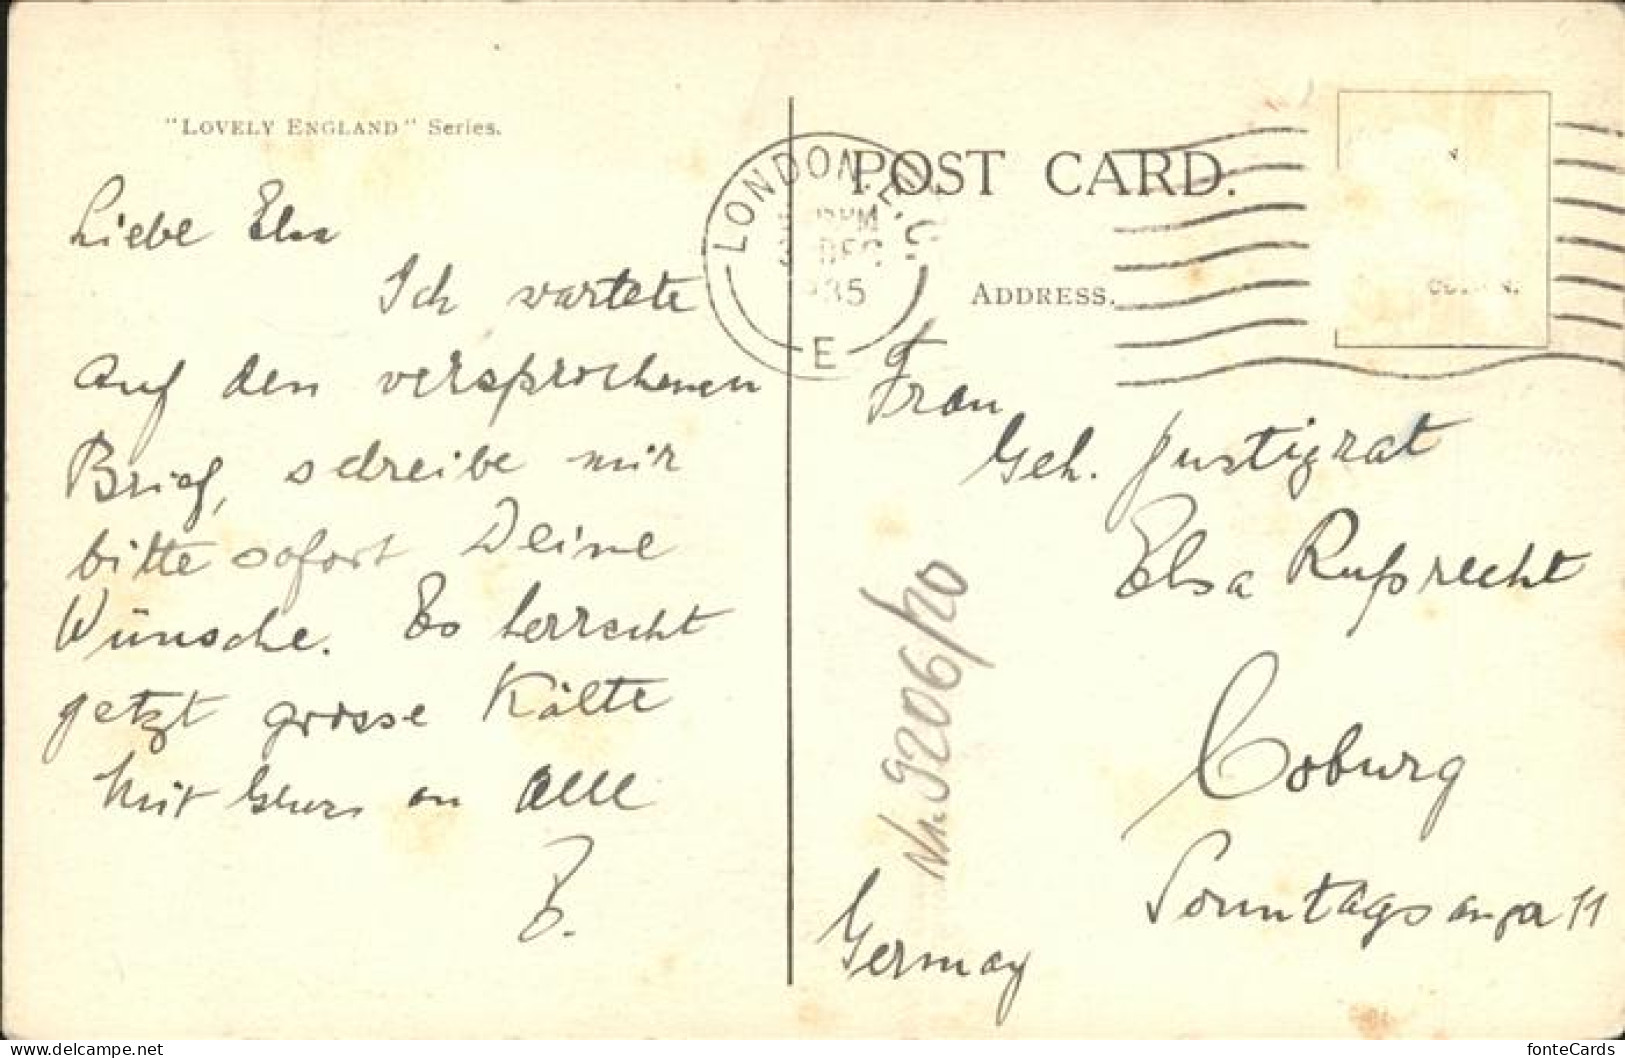 "LOVELY ENGLAND" Series.
Liebe Elsa
Ich wartete
auf den versprochenen
Brief, schreibe mir
bitte sofort Deine
Wünsche. Es herrscht
jetzt grosse Kälte
Mit Gruss an alle
B.
POST CARD.
LONDON. E.C.
PM
DEC
35
E
ADDRESS.
Frau
Geh. Justizrat
Elsa Ruprecht
Coburg
Sonntagsanger 11
Germay
Nr. 9206/20
fonteCards
https://www.delcampe.net